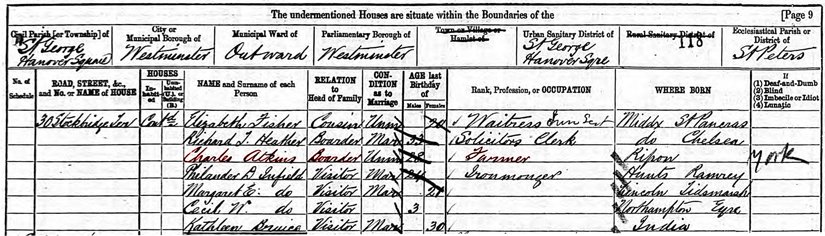 The undermentioned Houses are situate within the Boundaries of the [Page 9
Civil Parish [or Township] of St George Hanover Square
City or Municipal Borough of Westminster
Municipal Ward of Outward
Parliamentary Borough of Westminster
Town or Village or Hamlet of
Urban Sanitary District of St George Hanover Sqre
Rural Sanitary District of 118
Ecclesiastical Parish or District of St Peters
No. of Schedule
ROAD, STREET, &c., and No. or NAME of HOUSE
HOUSES
Inhabited
Uninhabited (U.), or Building (B.)
NAME and Surname of each Person
RELATION to Head of Family
CONDITION as to Marriage
AGE last Birthday of
Males Females
Rank, Profession, or OCCUPATION
WHERE BORN
If
(1) Deaf-and-Dumb
(2) Blind
(3) Imbecile or Idiot
(4) Lunatic
30 Stockbridge Ter Contd Elizabeth Fisher Cousin Unm Waitress Middx St Pancras
Richard T. Heather Boarder Mar 33 Solicitors Clerk do Chelsea
Charles Atkins Boarder Unm 28 Farmer Ripon York
Philander D Infield Visitor Mar 24 Ironmonger Hunts Ramsey
Margaret E. do Visitor Mar 21 Lincoln
Cecil W. do Visitor 3 Northampton Eyre
Kathleen Visitor Mar 30 India